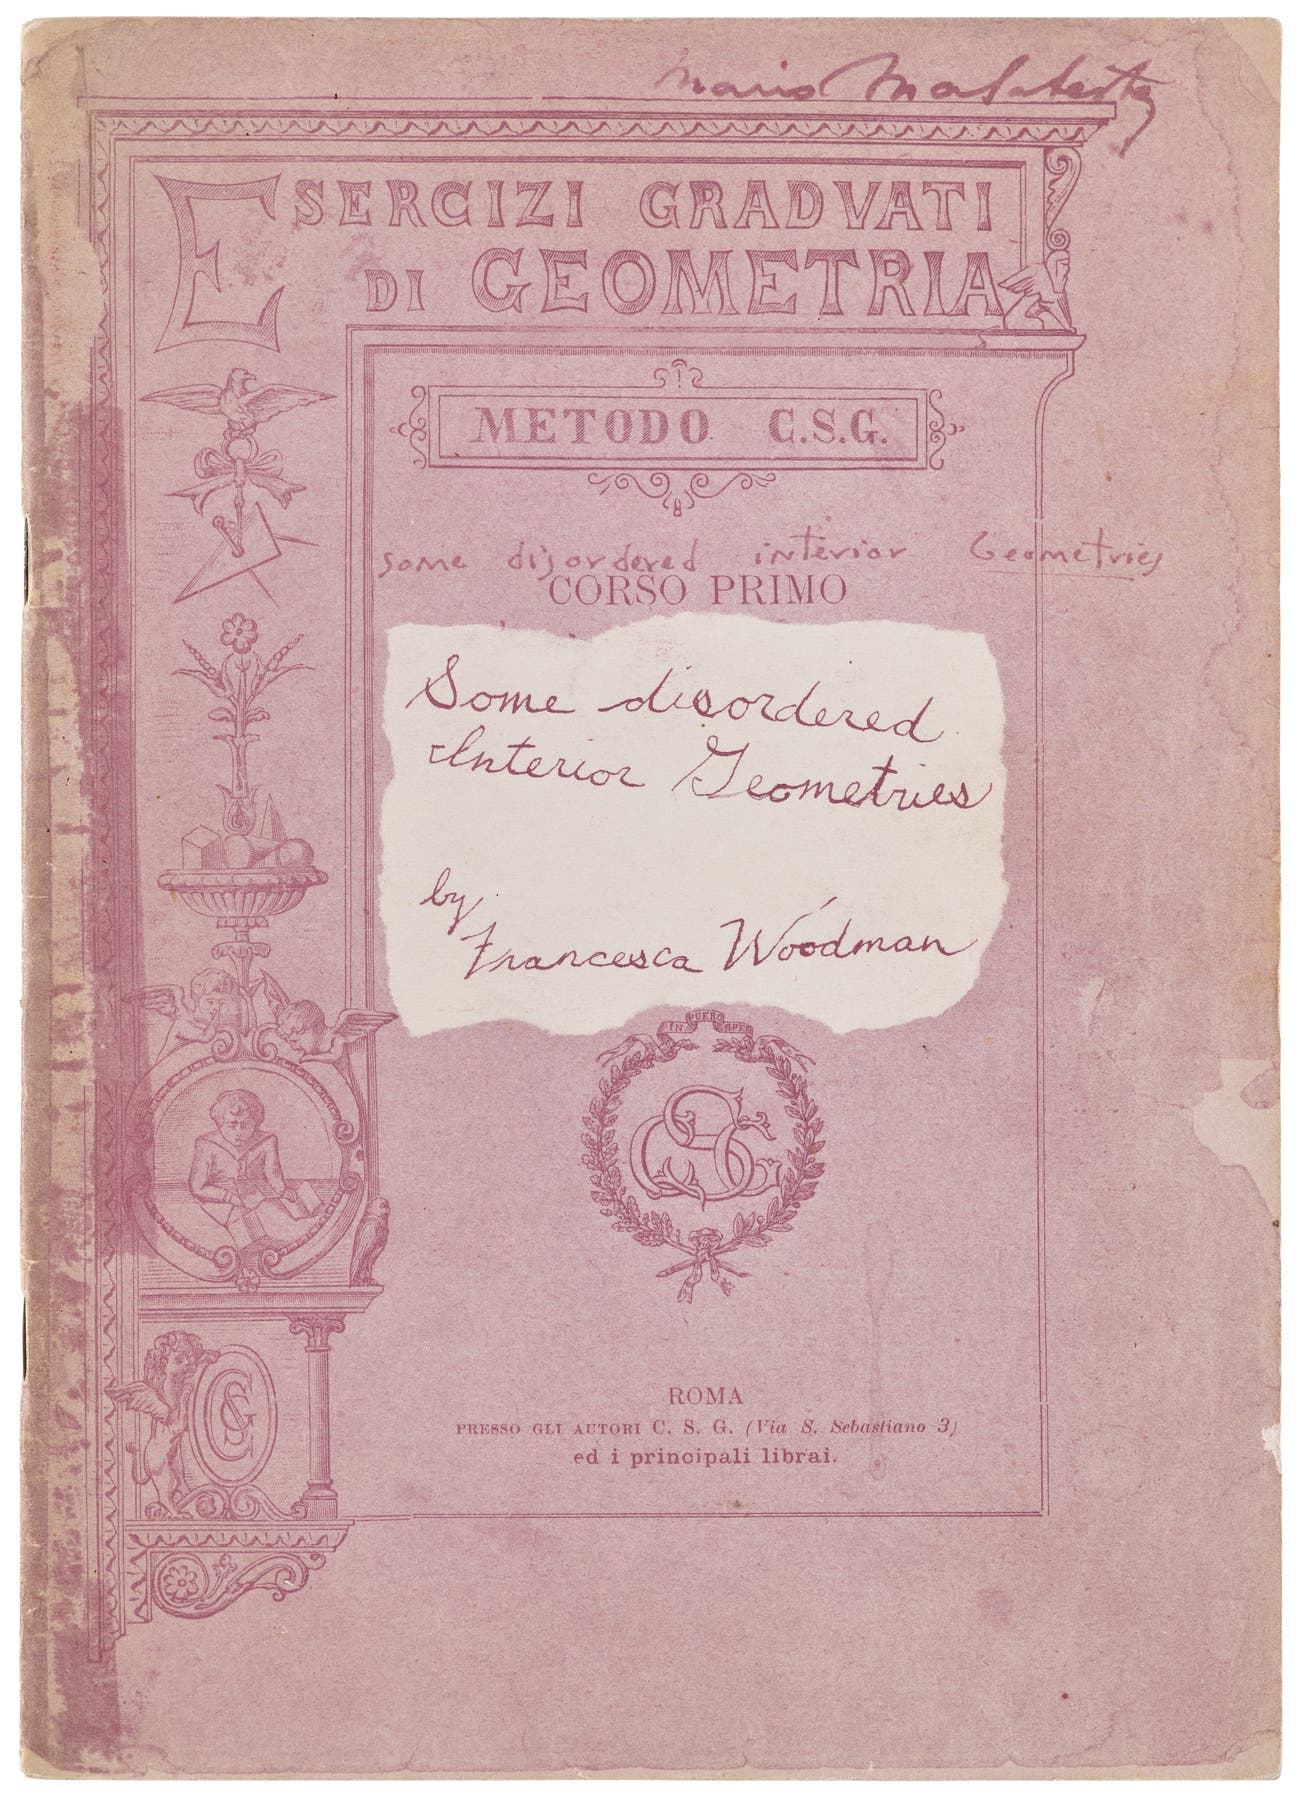 Mario
ESERCIZI GRADVATI
DI GEOMETRIA
METODO C.S.G.
some disordered interior Geometries
CORSO PRIMO
Some disordered
Interior Geometries
by
Francesca Woodman
IN PUERO SPES
CSG
ROMA
PRESSO GLI AUTORI C. S. G. (Via S. Sebastiano 3)
ed i principali librai.
CSG